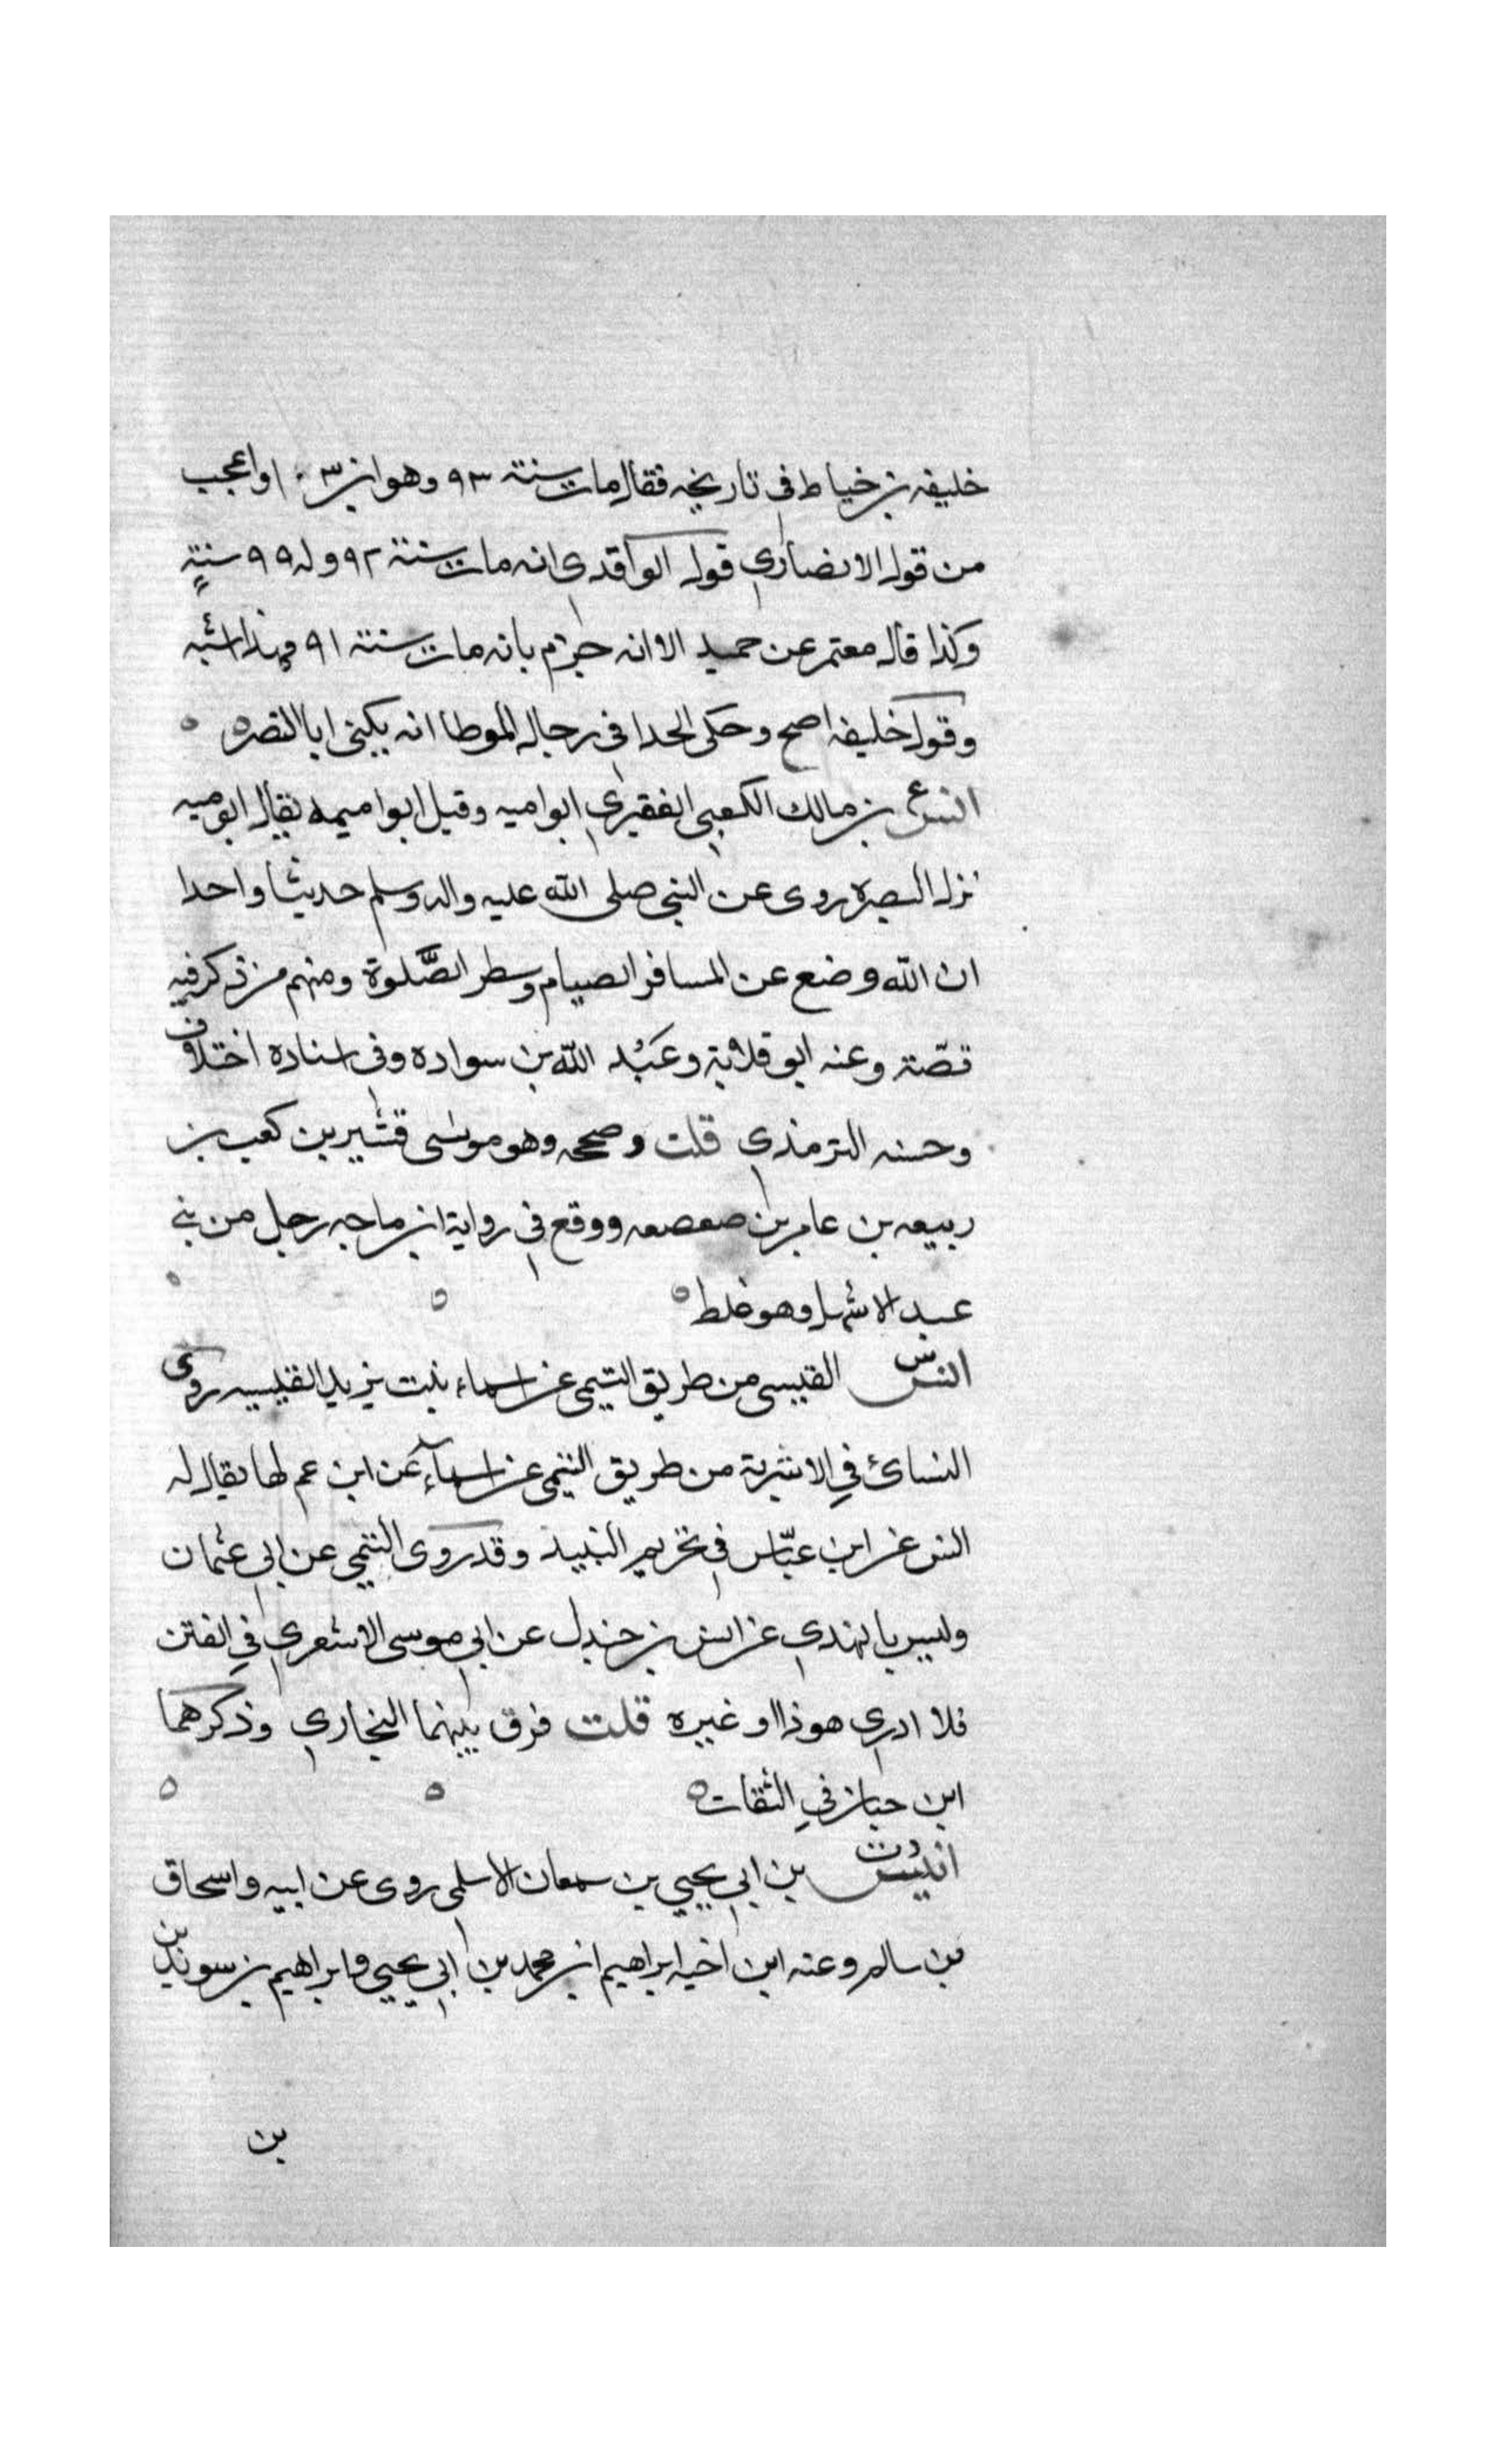 خليفه بن خياط في تاريخه فقال مات سنة ٩٣ وهو ابن ١٠٣ واعجب
من قول الانصاري قول الواقدي انه مات سنة ٩٢ وله ٩٩ سنة
وكذا قال معتمر عن حميد الا انه جزم بانه مات سنة ٩١ فهذا اشبه
وقول خليفه اصح وحكى الحدا في رجال الموطا انه يكنى ابا النضره
انس ع بن مالك الكعبي القشيري ابو اميه وقيل ابو اميمه يقال ابو ميه
نزل البصره روى عن النبي صلى الله عليه واله وسلم حديثا واحدا
ان الله وضع عن المسافر الصيام وسطر الصَّلوة ومنهم من ذكر فيه
قصّة وعنه ابو قلابة وعَبْد الله بن سواده وفي اسناده اختلاف
وحسنه الترمذي قلت وصححه وهو من بنى قشير بن كعب بن
ربيعه بن عامر بن صعصعه ووقع في رواية ابن ماجه رجل من بني
عبد الاشهل وهو غلط
انس س القيسى من طريق التيمى عن اسماء بنت يزيد القيسيه روى
النسائ في الاشربة من طريق التيمى عن اسماء عن ابن عم لها يقال له
انس عن ابن عبّاس في تحريم النبيذ وقد روى التيمي عن ابي عثمان
وليس بالنهدي عن انس بن جندل عن ابي موسى الاشعري في الفتن
فلا ادري هو ذا او غيره قلت فرق بينهما البخاري وذكرهما
ابن حبان في الثقات
انيس دت بن ابي يحيي بن سمعان الاسلمى روى عن ابيه واسحاق
بن سالم وعنه ابن اخيه ابراهيم ابن محمد بن ابي يحيي وابراهيم بن سويد بن
بن